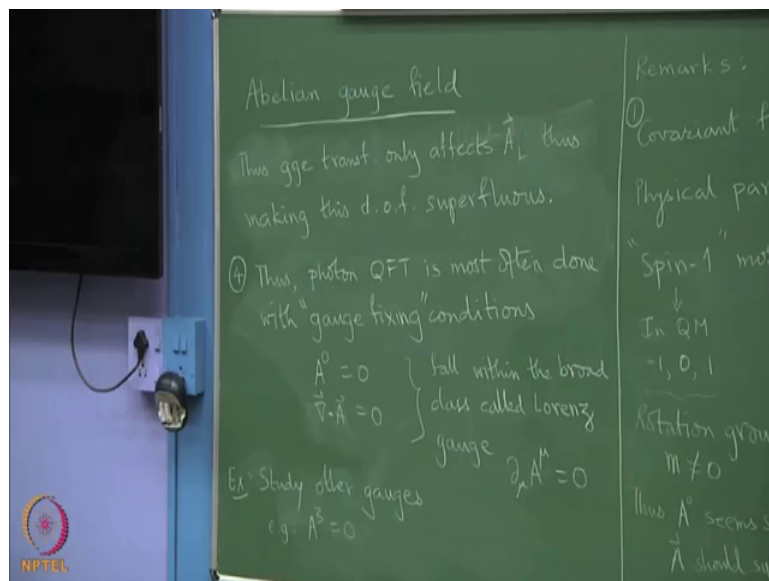 Abelian gauge field
Thus gge transf. only affects A⃗_L thus
making this d.o.f. superfluous.
④ Thus, photon QFT is most often done
with "gauge fixing" conditions
A⁰ = 0
∇⃗·A⃗ = 0
} fall within the broad
class called Lorenz
gauge ∂_μ A^μ = 0
Ex: Study other gauges
e.g. A³ = 0
Remarks:
① Covariant f
Physical par
"Spin-1" mo
↓
In QM
-1, 0, 1
Rotation grou
m ≠ 0
Thus A⁰ seems s
A⃗ should su
NPTEL